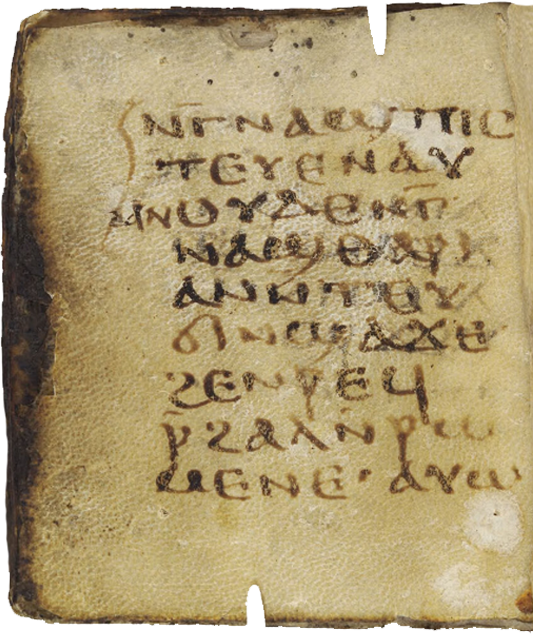 ⲛⲅ̅ⲛⲁϣⲡⲓⲥ
ⲧⲉⲩⲉ ⲛⲁⲩ
ⲁⲛ ⲟⲩⲇⲉ ⲛⲅ̅
ⲛⲁϣⲑⲁⲣⲓ
ⲁⲛ ⲛⲧⲉⲩ
ϭⲓⲛϣⲁϫⲉ
ϩⲉⲛⲣⲉϥ
ⲣ̅ϩⲁⲗ ⲛ̅ⲣⲱ
ⲙⲉ ⲛⲉ· ⲁⲩⲱ